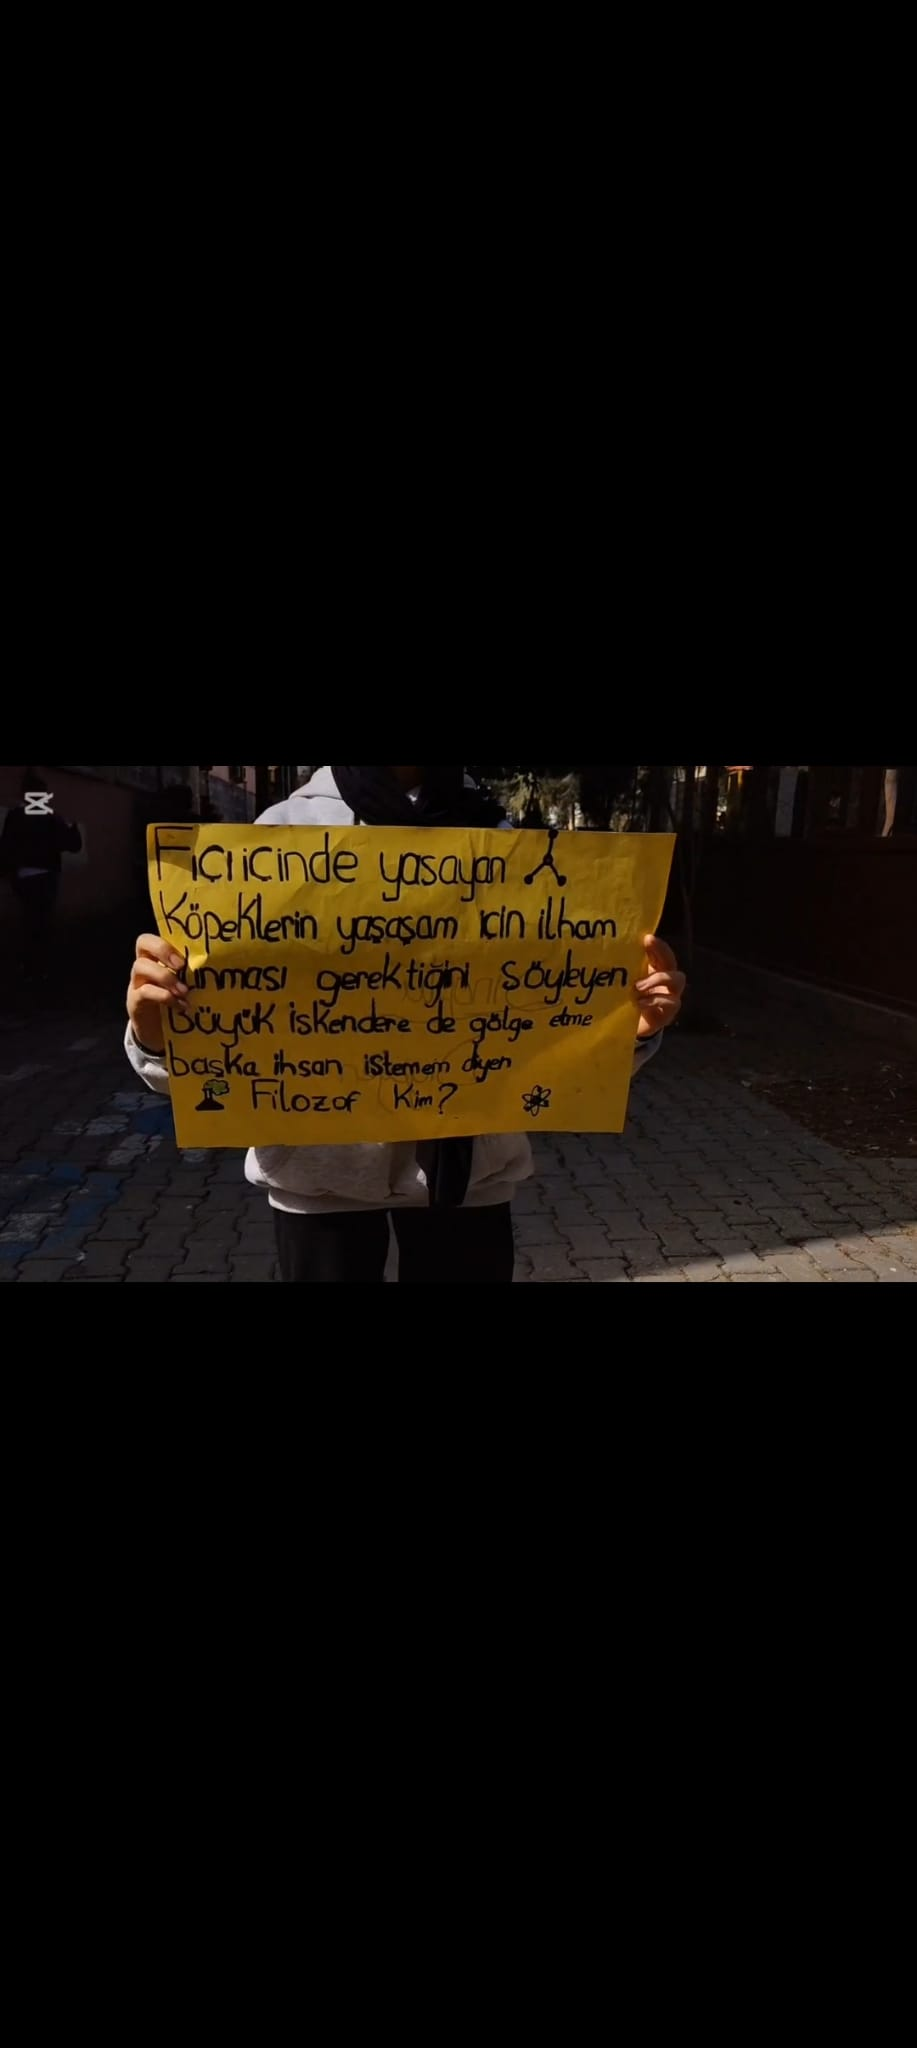 Fıçı içinde yasayan
Köpeklerin yaşaşam için ilham
gerektiğini Söyleyen
Büyük iskendere de gölge etme
başka ihsan istemem diyen
Filozof Kim?